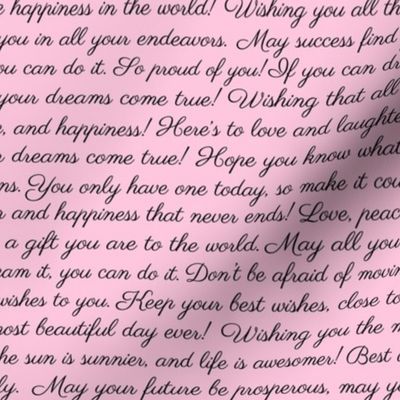 happiness in the world! Wishing you all th
you in all your endeavors. May success find
ou can do it. So proud of you! If you can dr
your dreams come true! Wishing that all
, and happiness! Here's to love and laughte
r dreams come true! Hope you know what
ns. You only have one today, so make it cou
r and happiness that never ends! Love, peac
a gift you are to the world. May all you
eam it, you can do it. Don't be afraid of movin
wishes to you. Keep your best wishes, close to
most beautiful day ever! Wishing you the m
he sun is sunnier, and life is awesomer! Best
ly. May your future be prosperous, may yo